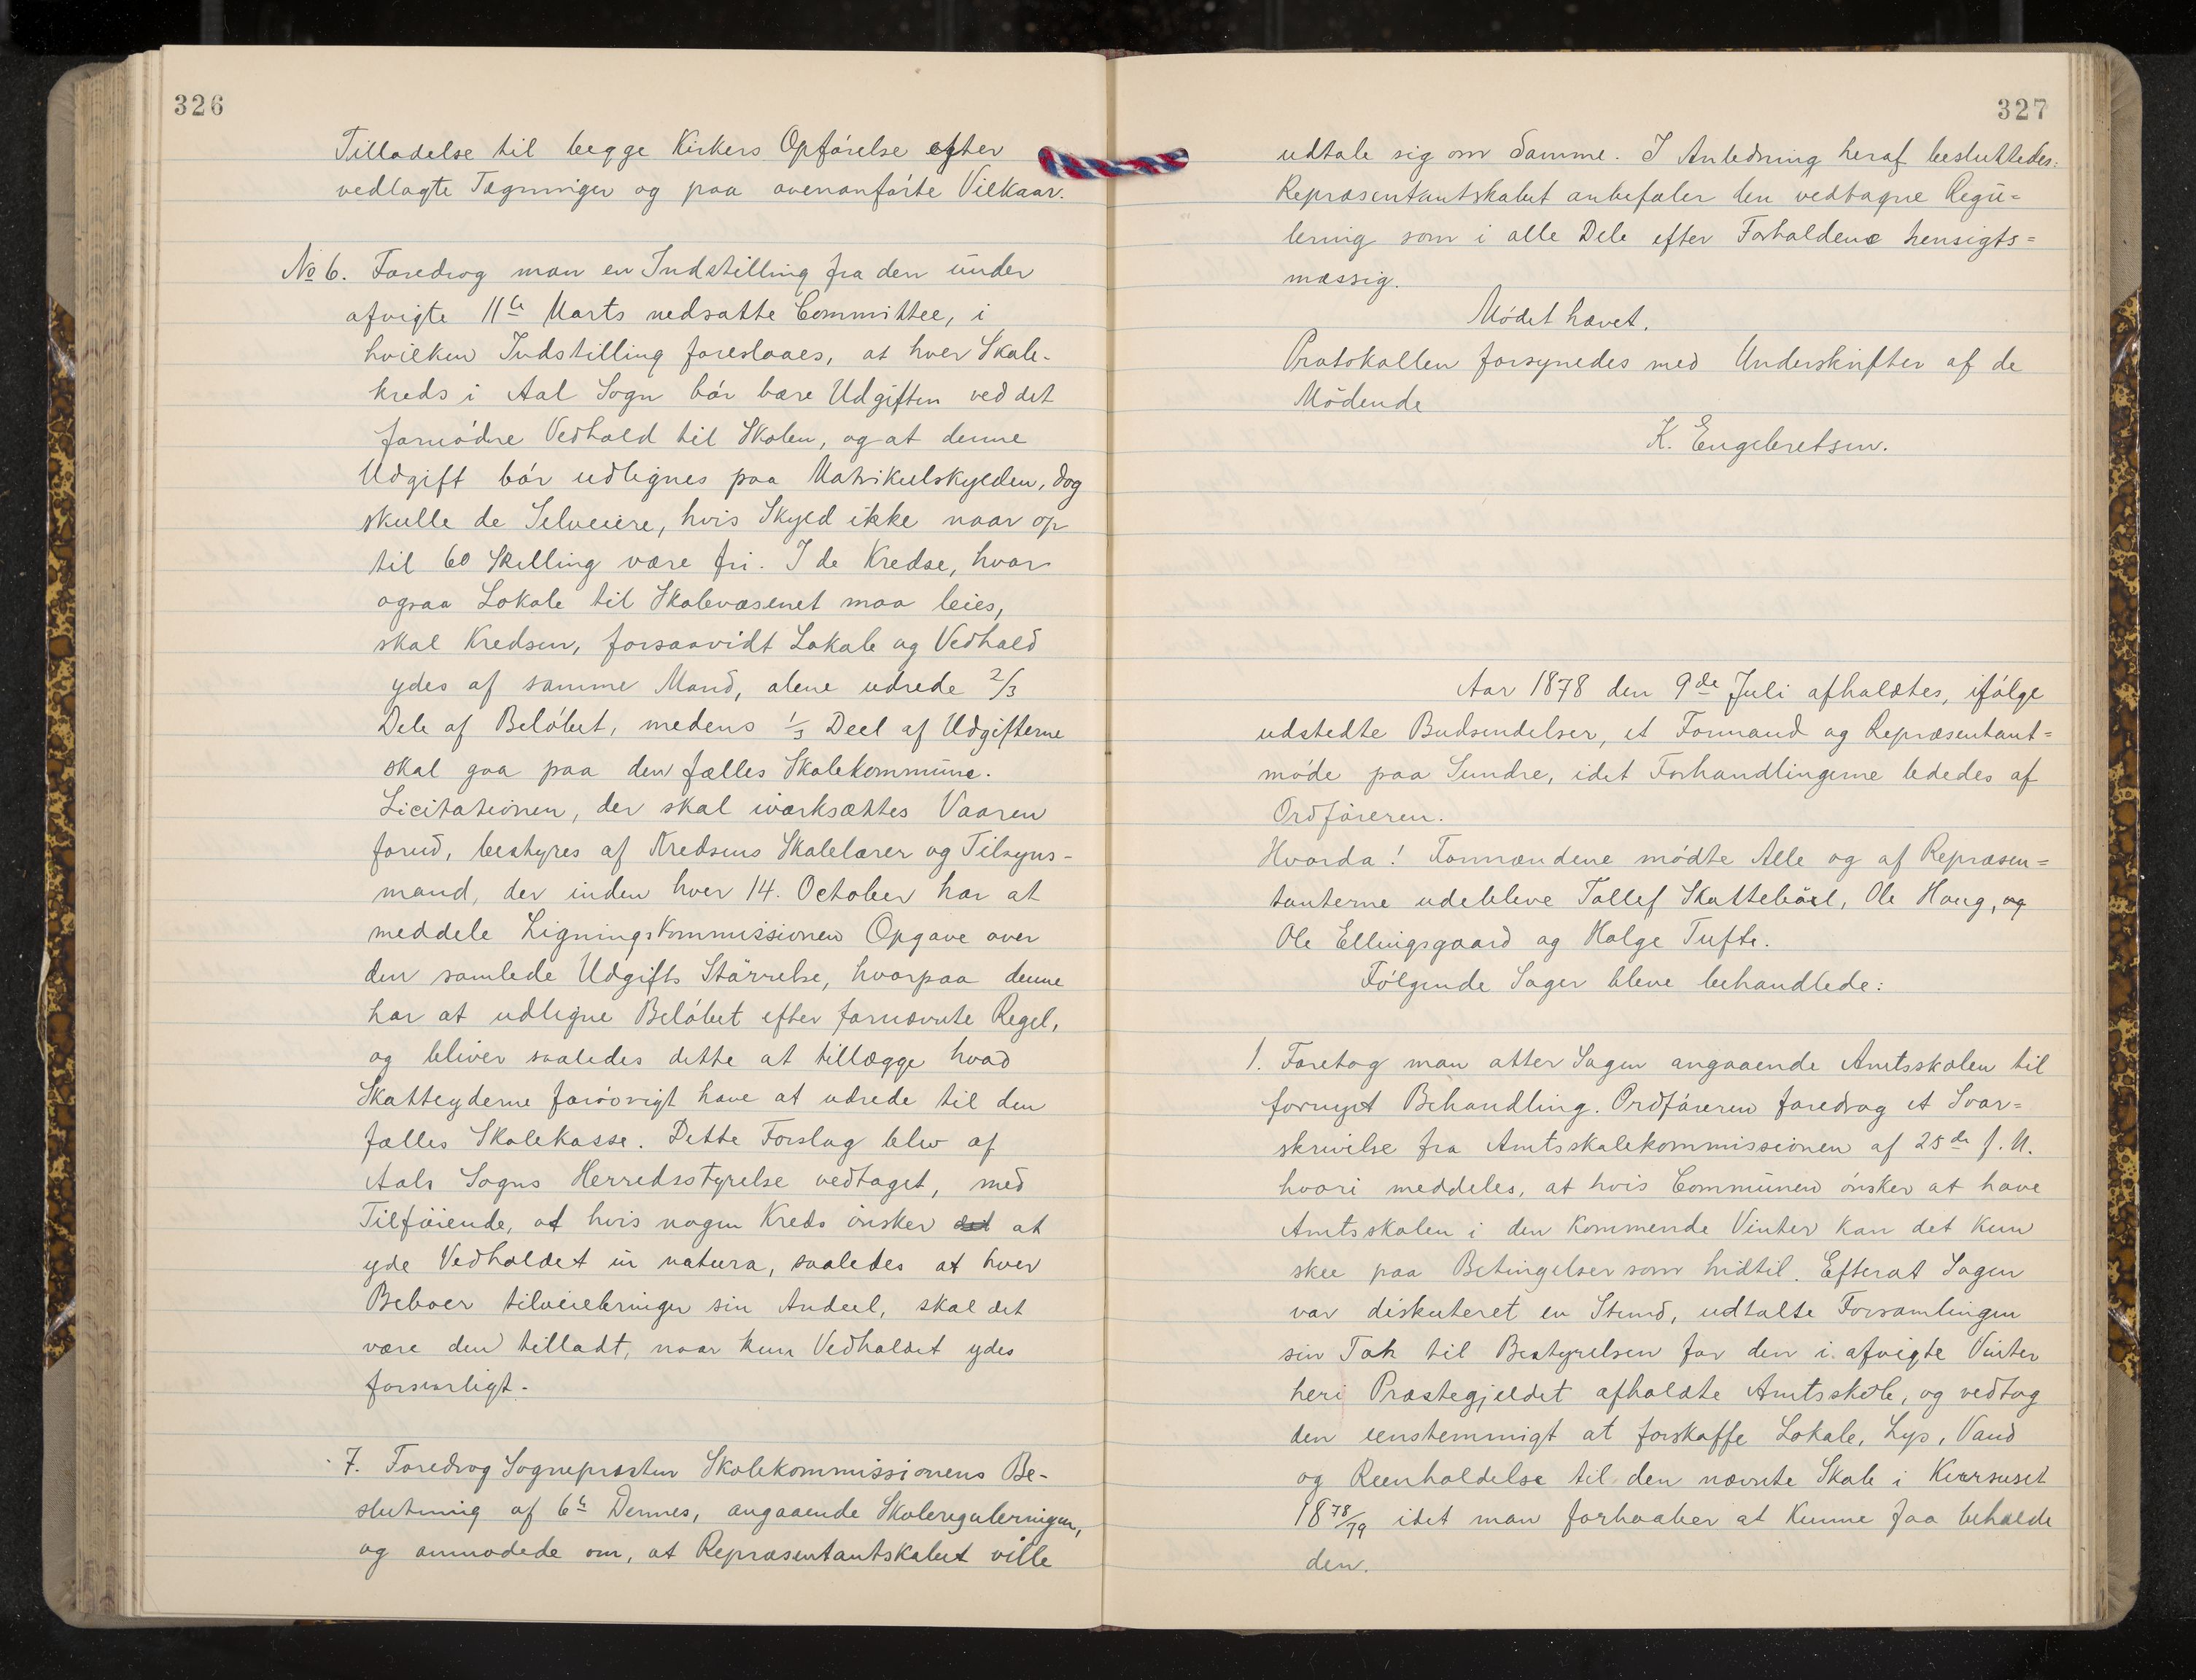 326
Tilladelse til begge Kirkers Opførelse efter
vedlagte Tegninger og paa ovenanførte Vilkaar.
No 6. Foredrog man en Indstilling fra den under
afvigte 11te Marts nedsatte Committee, i
hvilken Indstilling foreslaaes, at hver Skole-
kreds i Aal Sogn bør bære Udgiften ved det
fornødne Vedhold til Skolen, og at denne
Udgift bør udlignes paa Matrikulskylden, dog
skulle de Selveiere, hvis Skyld ikke naar op
til 60 Skilling være fri. I de Kredse, hvor
ogsaa Lokale til Skolevæsenet maa leies,
skal Kredsen, forsaavidt Lokale og Vedhold
ydes af samme Mand, alene udrede 2/3
Dele af Beløbet, medens 1/3 Deel af Udgifterne
skal gaa paa den fælles Skolekommune.
Licitationen, der skal iværksættes Vaaren
forud, bestyres af Kredsens Skolelærer og Tilsyns-
mand, der inden hver 14. October har at
meddele Ligningskommissionen Opgave over
den samlede Udgifts Størrelse, hvorpaa denne
har at udligne Beløbet efter fornævnte Regel,
og bliver saaledes dette at tillægge hvad
Skatteyderne forøvrigt have at udrede til den
fælles Skolekasse. Dette Forslag blev af
Aals Sogns Herredsstyrelse vedtaget, med
Tilføiende, at hvis nogen Kreds ønsker det at
yde Vedholdet in natura, saaledes at hver
Beboer tilveiebringer sin Andeel, skal det
være den tilladt, naar kun Vedholdet ydes
forsvarligt.
7. Foredrog Sognepresten Skolekommissionens Be-
slutning af 6te Dennes, angaaende Skolereguleringen,
og anmodede om, at Repræsentantskabet ville
327
udtale sig om Samme. I Anledning heraf besluttedes:
Repræsentantskabet anbefaler den vedtagne Regu=
lering som i alle Dele efter Forholdene hensigts=
mæssig.
Mødet hævet.
Protokollen forsynedes med Underskrifter af de
Mødende
K. Engebretsen.
Aar 1878 den 9de Juli afholdtes, ifølge
udstedte Budsendelser, et Formand og Repræsentant=
møde paa Sundre, idet Forhandlingerne lededes af
Ordføreren.
Hvorda! Formændene mødte Alle og af Repræsen=
tanterne udebleve Tollef Skattebøel, Ole Haug, og
Ole Ellingsgaard og Holge Tufte.
Følgende Sager bleve behandlede:
1. Foretog man atter Sagen angaaende Amtsskolen til
fornyet Behandling. Ordføreren foredrog et Svar=
skrivelse fra Amtsskolekommissionen af 25de f. M.
hvori meddeles, at hvis Communen ønsker at have
Amtsskolen i den kommende Vinter kan det kun
skee paa Betingelser som hidtil. Efterat Sagen
var diskuteret en Stund, udtalte Forsamlingen
sin Tak til Bestyrelsen for den i afvigte Vinter
heri Præstegjeldet afholdte Amtsskole, og vedtog
den eenstemmigt at forskaffe Lokale, Lys, Vand
og Reenholdelse til den nævnte Skole i Kuursuset
1878/79 idet man forhaaber at kunne faa beholde
den.